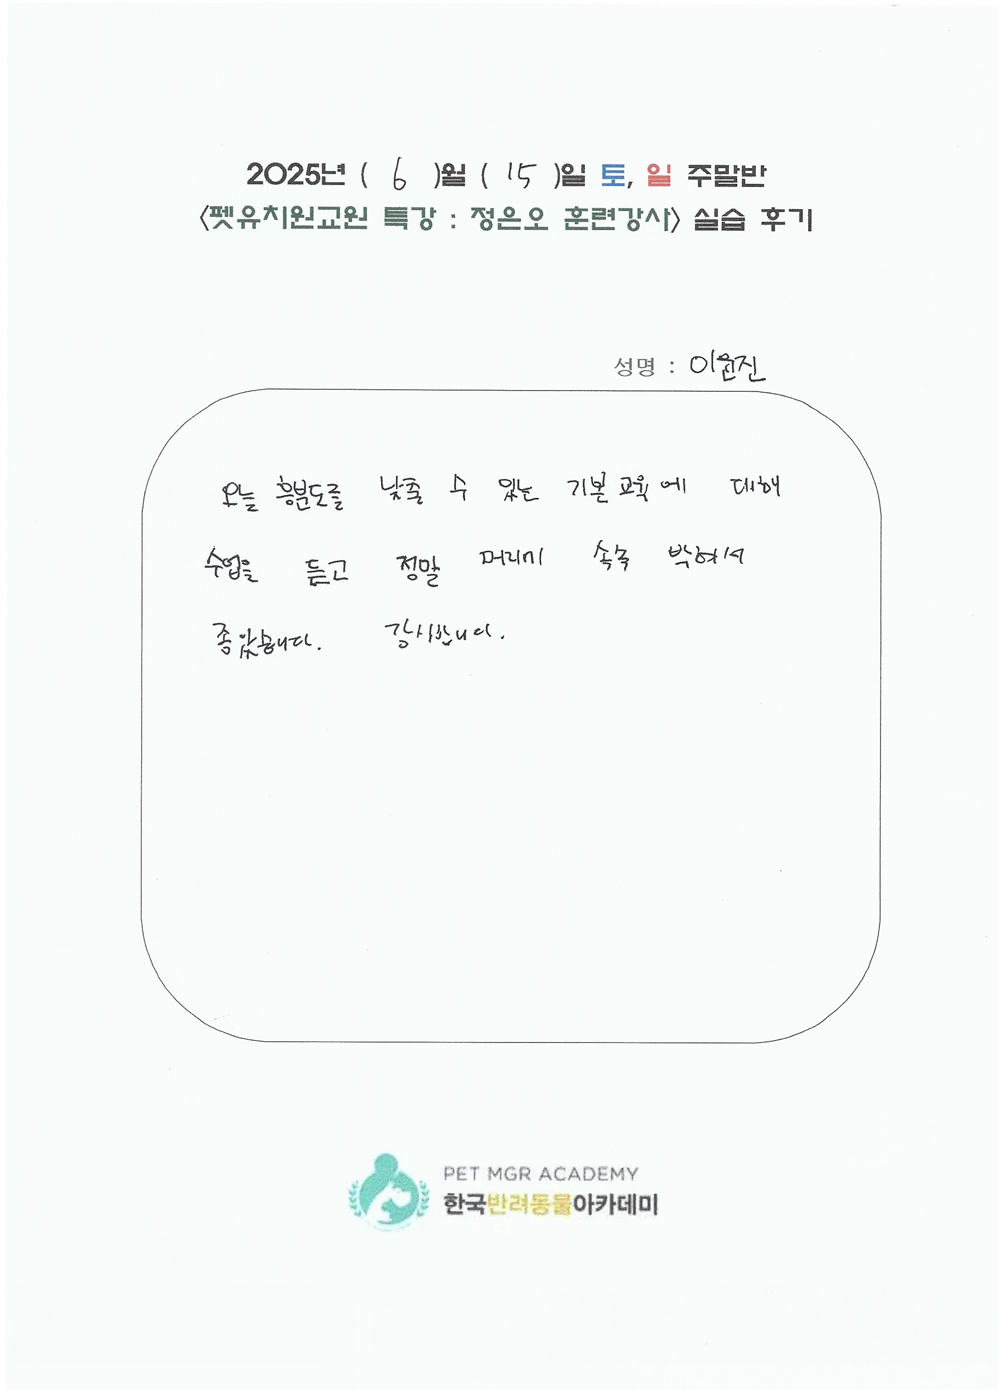 2025년 ( 6 )월 ( 15 )일 토, 일 주말반
<펫유치원교원 특강 : 정은오 훈련강사> 실습 후기
성명 : 이윤진
오늘 흥분도를 낮출 수 있는 기본 교육에 대해
수업을 듣고 정말 머리에 속속 박혀서
좋았습니다. 감사합니다.
PET MGR ACADEMY
한국반려동물아카데미